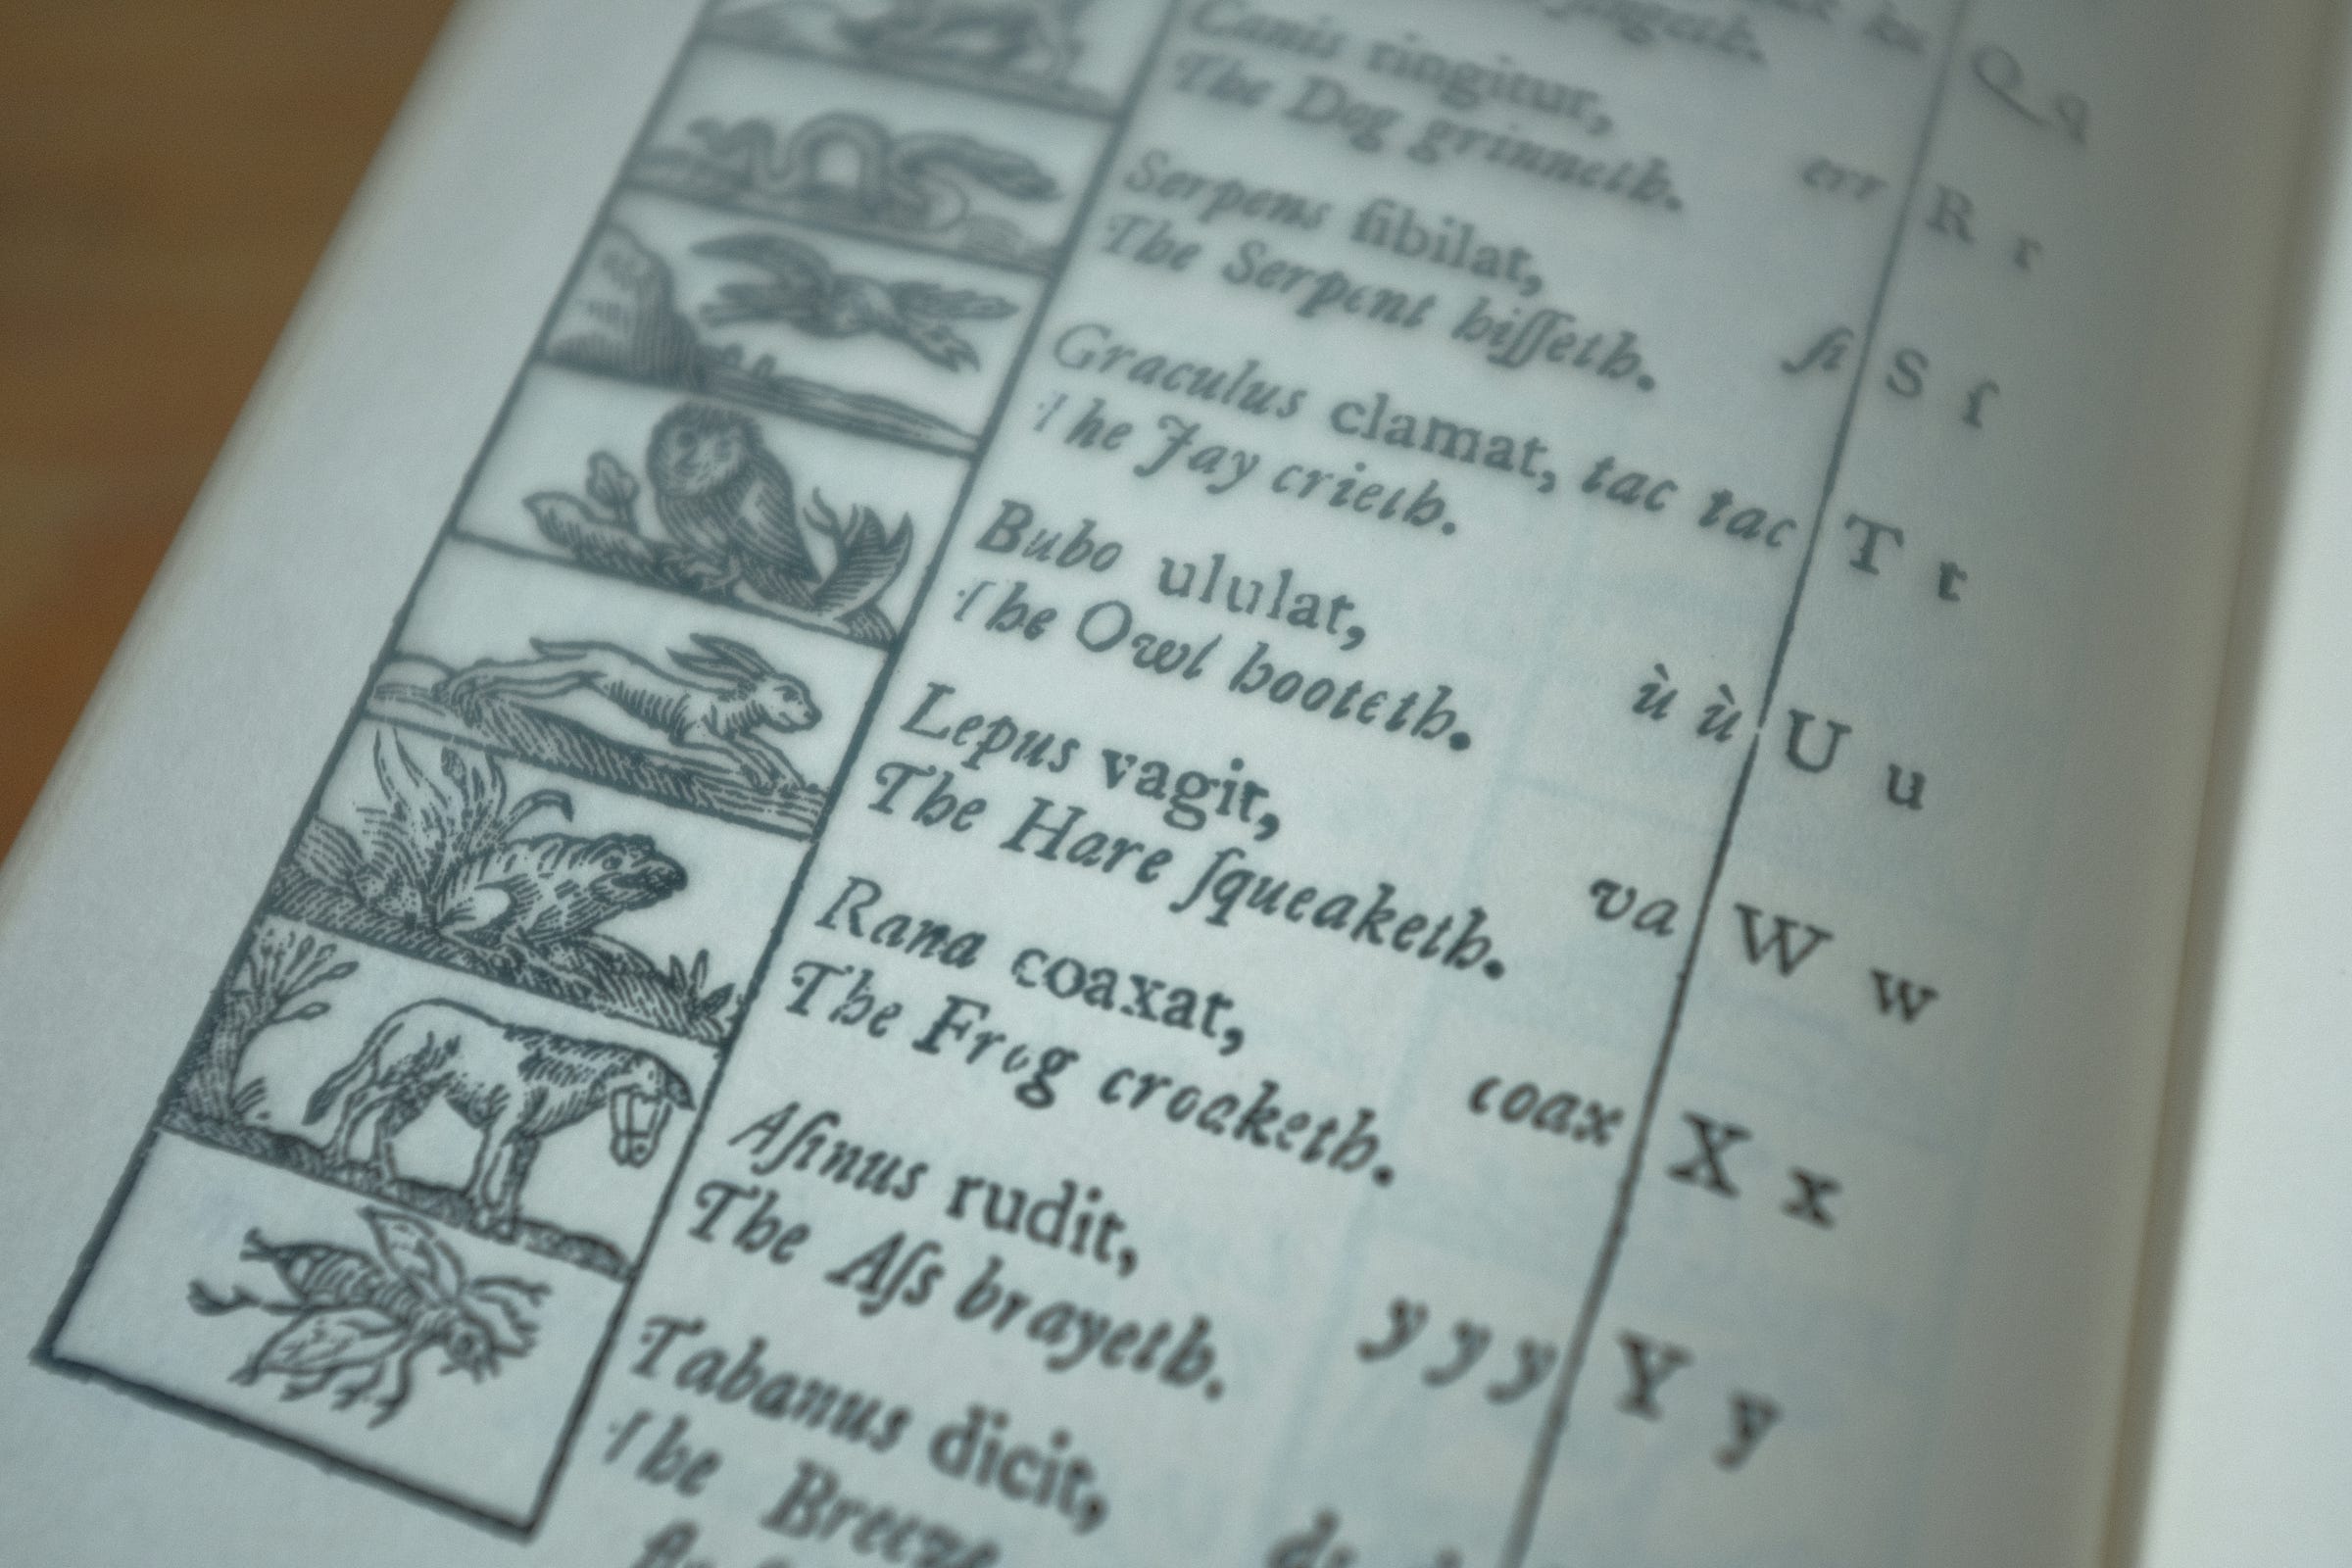 ngeth.
Q q
Canis ringitur,
The Dog grinneth. err R r
Serpens ſibilat,
The Serpent hiſſeth. ſi S ſ
Graculus clamat, tac tac T t
The Jay crieth.
Bubo ululat, ù ù U u
The Owl hooteth.
Lepus vagit, va W w
The Hare ſqueaketh.
Rana coaxat, coax X x
The Frog croaketh.
Aſinus rudit, y y y Y y
The Aſs brayeth.
Tabanus dicit,
The Breeze